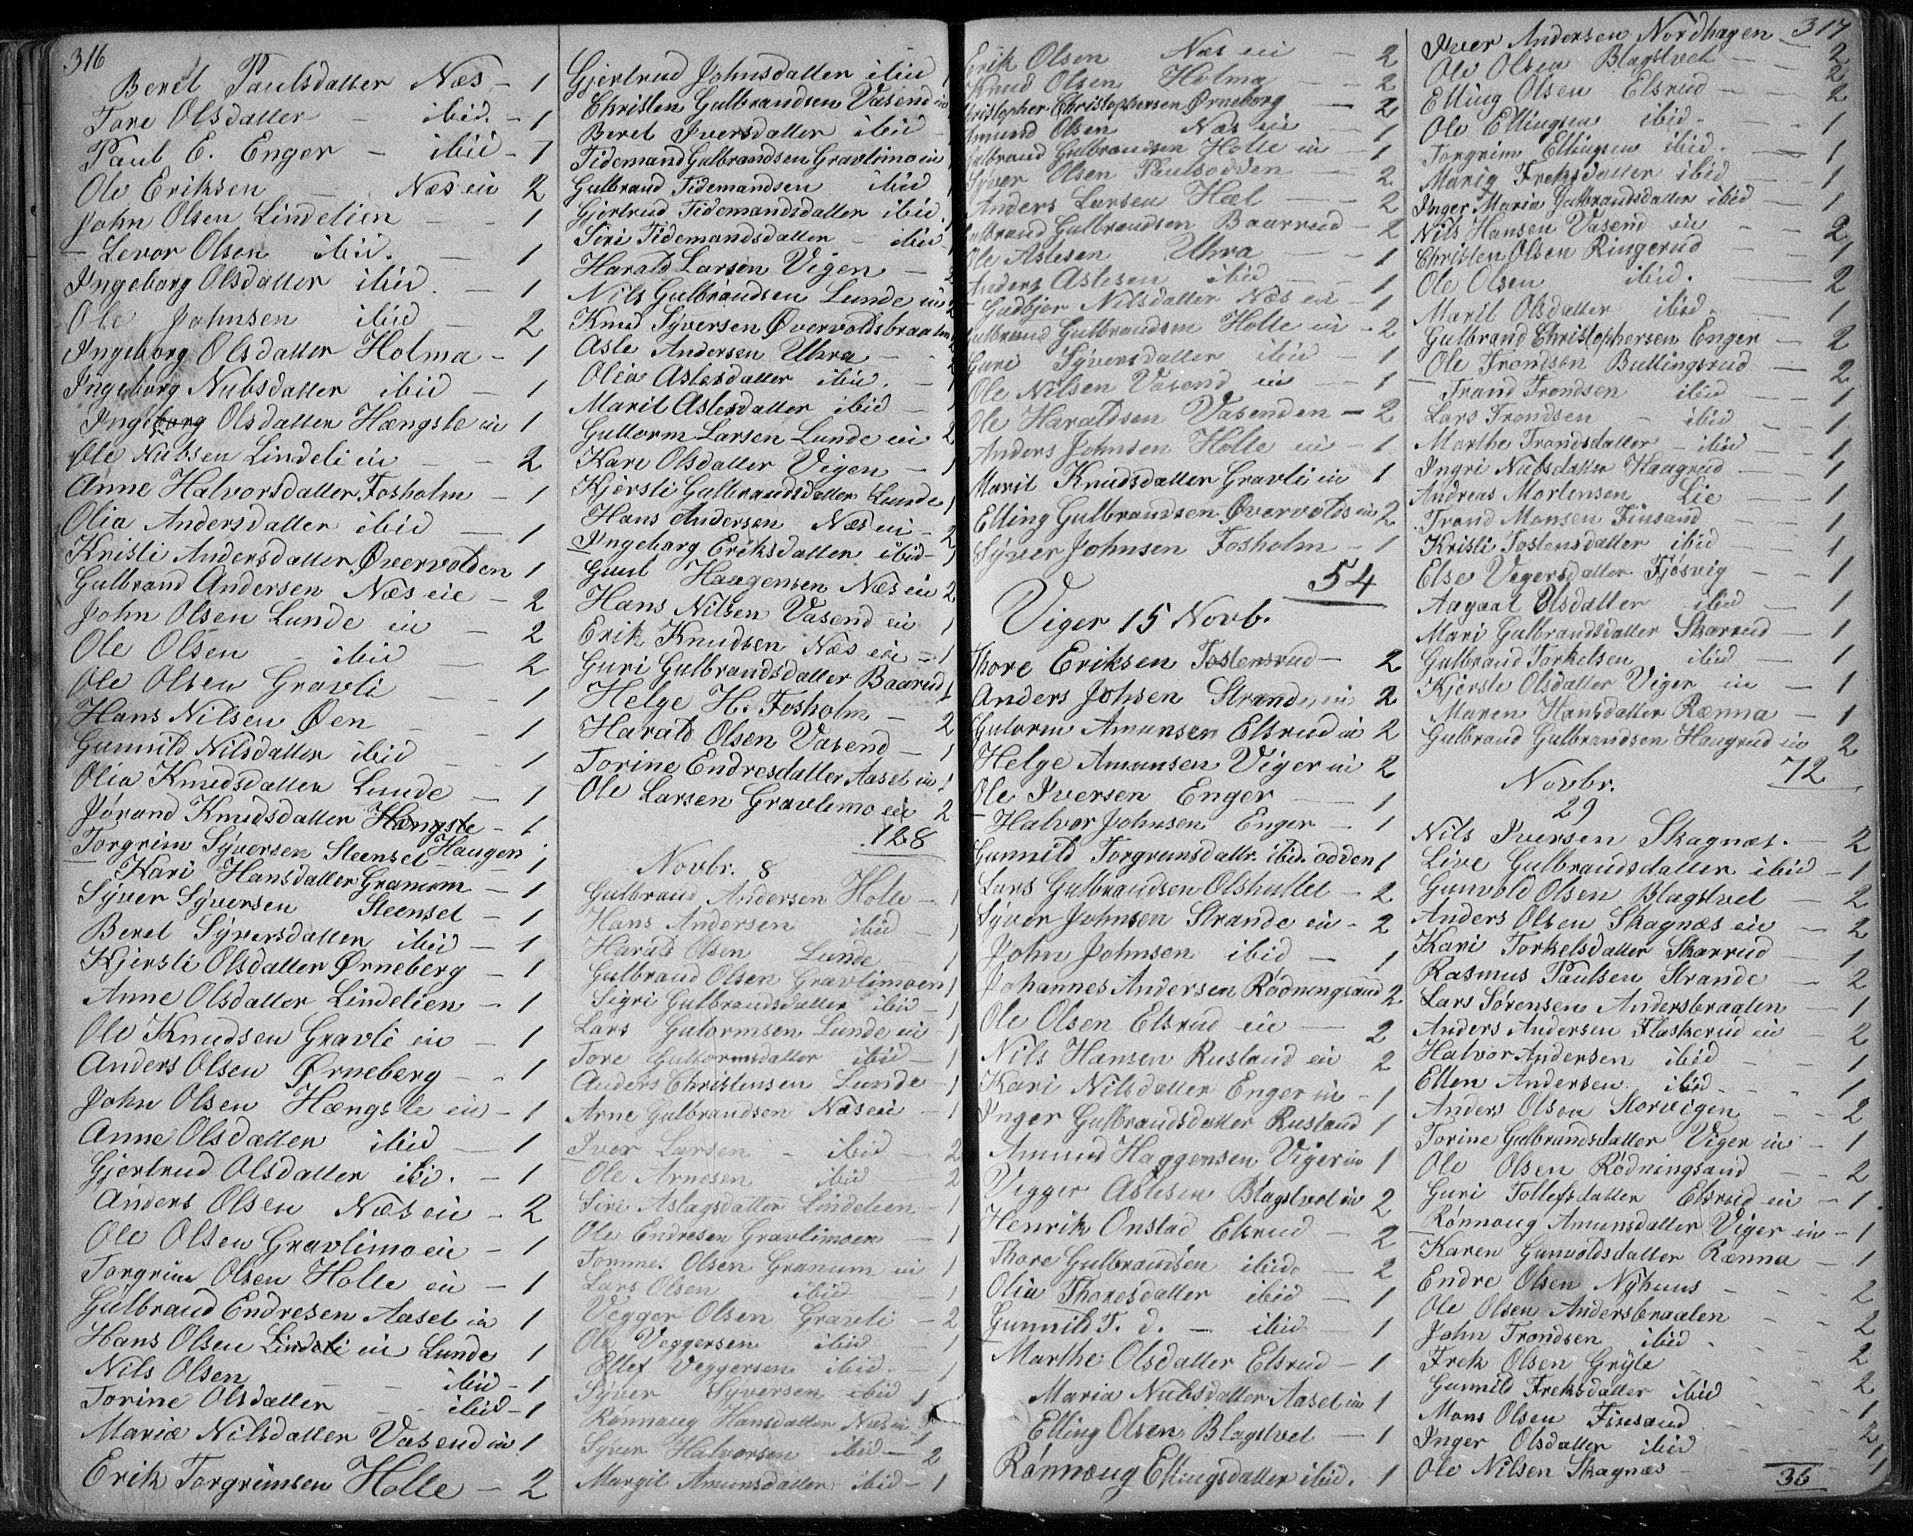 316
Beret Paulsdatter Næs - 1
Tore Olsdatter - ibid. - 1
Paul E. Enger - ibid - 1
Ole Eriksen - Næs eie 2
John Olsen Lindelien - 1
Levor Olsen ibid. - 1
Ingeborg Olsdatter ibid. - 1
Ole Johnsen ibid - 2
Ingeborg Olsdatter Holma - 1
Ingeborg Nubsdatter ibid - 1
Ingeborg Olsdatter Hængsle eie 1
Ole Nubsen Lindeli eie - 2
Anne Halvorsdatter Fosholm - 1
Olia Andersdatter ibid - 1
Kristi Andersdatter Øvervolden 1
Gulbrand Andersen Næs eie - 2
John Olsen Lunde eie - 2
Ole Olsen - ibid - 2
Ole Olsen Gravli - 1
Hans Nilsen Øen - 1
Gunnild Nilsdatter ibid - 1
Olia Knudsdatter Lunde - 1
Jørand Knudsdatter Hængsle - 1
Torgrim Syversen Steenset Haugen 1
Kari Hansdatter Granum - 1
Syver Syversen Steenset - 1
Beret Syversdatter ibid - 1
Kjersti Olsdatter Ørneberg - 1
Anne Olsdatter Lindelien - 1
Ole Knudsen Gravli eie - 1
Anders Olsen Ørneberg - 1
John Olsen Hængsle eie - 1
Anne Olsdatter ibid - 1
Gjertrud Olsdatter ibi. - 1
Anders Olsen Næs eie - 2
Ole Olsen Gravlimo eie - 1
Torgrim Olsen Holte eie - 1
Gulbrand Endresen Aaset eie 1
Hans Olsen Lindeli eie Lunde 1
Nils Olsen - ibid - 1
Torine Olsdatter - ibid - 1
Mariæ Nilsdatter Vasend eie 1
Erik Torgrimsen Holte - 2
Gjertrud Johnsdatter ibid 1
Christen Gulbrandsen Vasend eie
Beret Iversdatter ibid
Tidemand Gulbrandsen Gravlimo eie
Gulbrand Tidemandsen ibid 1
Gjertrud Tidemandsdatter ibid.
Siri Tidemandsdatter - ibid 1
Harald Larsen Vigen - 2
Nils Gulbrandsen Lunde eie 2
Knud Syversen Øvervoldsbraaten
Asle Andersen Uhra - 2
Olia Aslesdatter ibid. - 1
Marit Aslesdatter ibid - 1
Guttorm Larsen Lunde eie 2
Kari Olsdatter Vigen - 1
Kjersti Gulbrandsdatter Lunde 1
Hans Andersen Næs eie - 2
Ingeborg Eriksdatter ibid - 1
Guul Haagensen Næs eie 2
Hans Nilsen Vasend eie 1
Erik Knudsen Næs eie - 1
Guri Gulbrandsdatter Baarud 1
Helge H. Fosholm - 2
Harald Olsen Vasend - 1
Torine Endresdatter Aaset eie 1
Ole Larsen Gravlimo eie 2
128
Novbr. 8
Gulbrand Andersen Holte - 1
Hans Andersen ibid - 1
Harald Olsen Lunde 1
Gulbrand Olsen Gravlimoen 1
Sigri Gulbrandsdatter ibid - 1
Lars Gutormsen Lunde eie - 1
Tore Guttormsdatter ibid - 1
Anders Christensen Lunde - 1
Arne Gulbrandsen Næs eie - 1
Iver Larsen - ibid - 2
Ole Arnesen ibid - 2
Siri Aslagsdatter Lindelien - 1
Ole Endresen Gravlimoen - 1
Tommes Olsen Granum eie 1
Lars Olsen ibid - 1
Vegger Olsen Gravli - 2
Ole Veggersen ibid - 1
Ellef Veggersen ibid. 1
Syver Syversen ibid 1
Rønnaug Hansdatter Næs eie 1
Syver Halvorsen ibid - 2
Margit Amunsdatter ibid - 1
Erik Olsen Næs eie - 2
Knud Olsen Holma - 2
Christopher Christophersen Ørneborg - 2
Amund Olsen Næs eie - 1
Gulbrand Gulbrandsen Holte eie - 1
Syver Olsen Paulsodden - 2
Anders Larsen Hæl - 2
Gulbrand Gulbrandsen Baarrud - 2
Ole Aslesen Uhra - 1
Anders Aslesen ibid - 1
Gudbjør Nilsdatter Næs eie - 1
Gulbrand Gulbrandsen Holte eie - 2
Guri Syversdatter ibid - 1
Ole Nilsen Vasend eie - 1
Ole Haraldsen Vasenden - 2
Anders Johnsen Holte eie - 1
Marit Knudsdatter Gravli eie 1
Elling Gulbrandsen Øvervolds eie 2
Syver Johnsen Fosholm - 1
54
Viger 15 Novb.
Thore Eriksen Tostensrud - 2
Anders Johsen Strande eie 2
Gutorm Amunsen Elsrud ei 2
Helge Amunsen Viger ei 2
Ole Iversen Enger - 1
Halvor Johnsen Enger - 1
Gunnild Torgrimsdattr. ibid. odden 1
Lars Gulbrandsen Olshullet - 2
Syver Johnsen Strande eie - 2
John Johnsen ibid - 1
Johannes Andersen Rødningsand 2
Ole Olsen Elsrud eie - 2
Nils Hansen Rustand ei 2
Kari Nilsdatter Enger eie - 1
Inger Gulbrandsdatter Rustand 1
Amund Haggensen Viger eie 1
Vigger Aslesen Blagstvet eie 2
Henrik Onstad Elsrud - 2
Thore Gulbrandsen ibid. - 2
Olia Thoresdatter ibid - 1
Gunnild T. d. - ibid - 1
Marthe Olsdatter Elsrud - 1
Maria Nubsdatter Aaset eie 1
Elling Olsen Blagstvet - 1
Rønnaug Ellingsdatter ibid. 1
317
Iver Andersen Nordhagen - 2
Ole Olsen Blagstvet - 2
Elling Olsen Elsrud - 2
Ole Ellingsen ibid. - 1
Torgrim Ellingsen ibid. - 1
Marig Freksdatter ibid - 1
Inger Maria Gulbrandsdatter ibid - 1
Nils Hansen Vasend eie - 2
Christen Olsen Ringerud - 1
Ole Olsen ibid. - 2
Marit Olsdatter ibid. - 1
Gulbrand Christophersen Enger - 2
Ole Trondsen Bullingsrud - 2
Trand Trondsen ibid - 1
Lars Trondsen - ibid - 1
Marthe Trondsdatter - ibid - 1
Ingri Nubsdatter Haagrud - 1
Andreas Mortensen Lie - 1
Trond Monsen Finsand - 1
Kristi Tostensdatter ibid - 1
Else Vegersdatter Fjøsvig - 1
Aagaat Olsdatter ibid - 1
Mari Gulbrandsdatter Skarrud - 1
Gulbrand Torkelsen ibid - 1
Kjersti Olsdatter Viger eie - 1
Maren Hansdatter Rænna - 1
Gulbrand Gulbrandsen Haugrud eie 2
72
Novbr.
29
Nils Iversen Skagnæs. - 2
Live Gulbrandsdatter ibid - 1
Gunvold Olsen Blagstvet - 2
Anders Olsen Skagnæs eie - 2
Kari Torkelsdatter Skarrud - 1
Rasmus Paulsen Strande - 2
Lars Sørensen Andersbraaten - 1
Anders Andersen Flaskerud eie - 2
Halvor Andersen ibid - 1
Ellen Andersen ibid. - 1
Anders Olsen Storvigen - 2
Torine Gulbrandsdatter Viger eie - 1
Ole Olsen Rødningsand - 2
Guri Tollefsdatter Elsrud eie - 1
Rønnaug Amunsdatter Viger eie - 1
Karen Gunvoldsdatter Rænna - 1
Endre Olsen Nyhuus - 2
Ole Olsen Andersbraaten - 2
John Trondsen ibid -
Frek Olsen Gryte - 2
Gunnild Freksdatter ibid - 2
Mons Olsen Finsand - 1
Inger Olsdatter ibid - 2
Ole Nilsen Skagnæs - 1
36